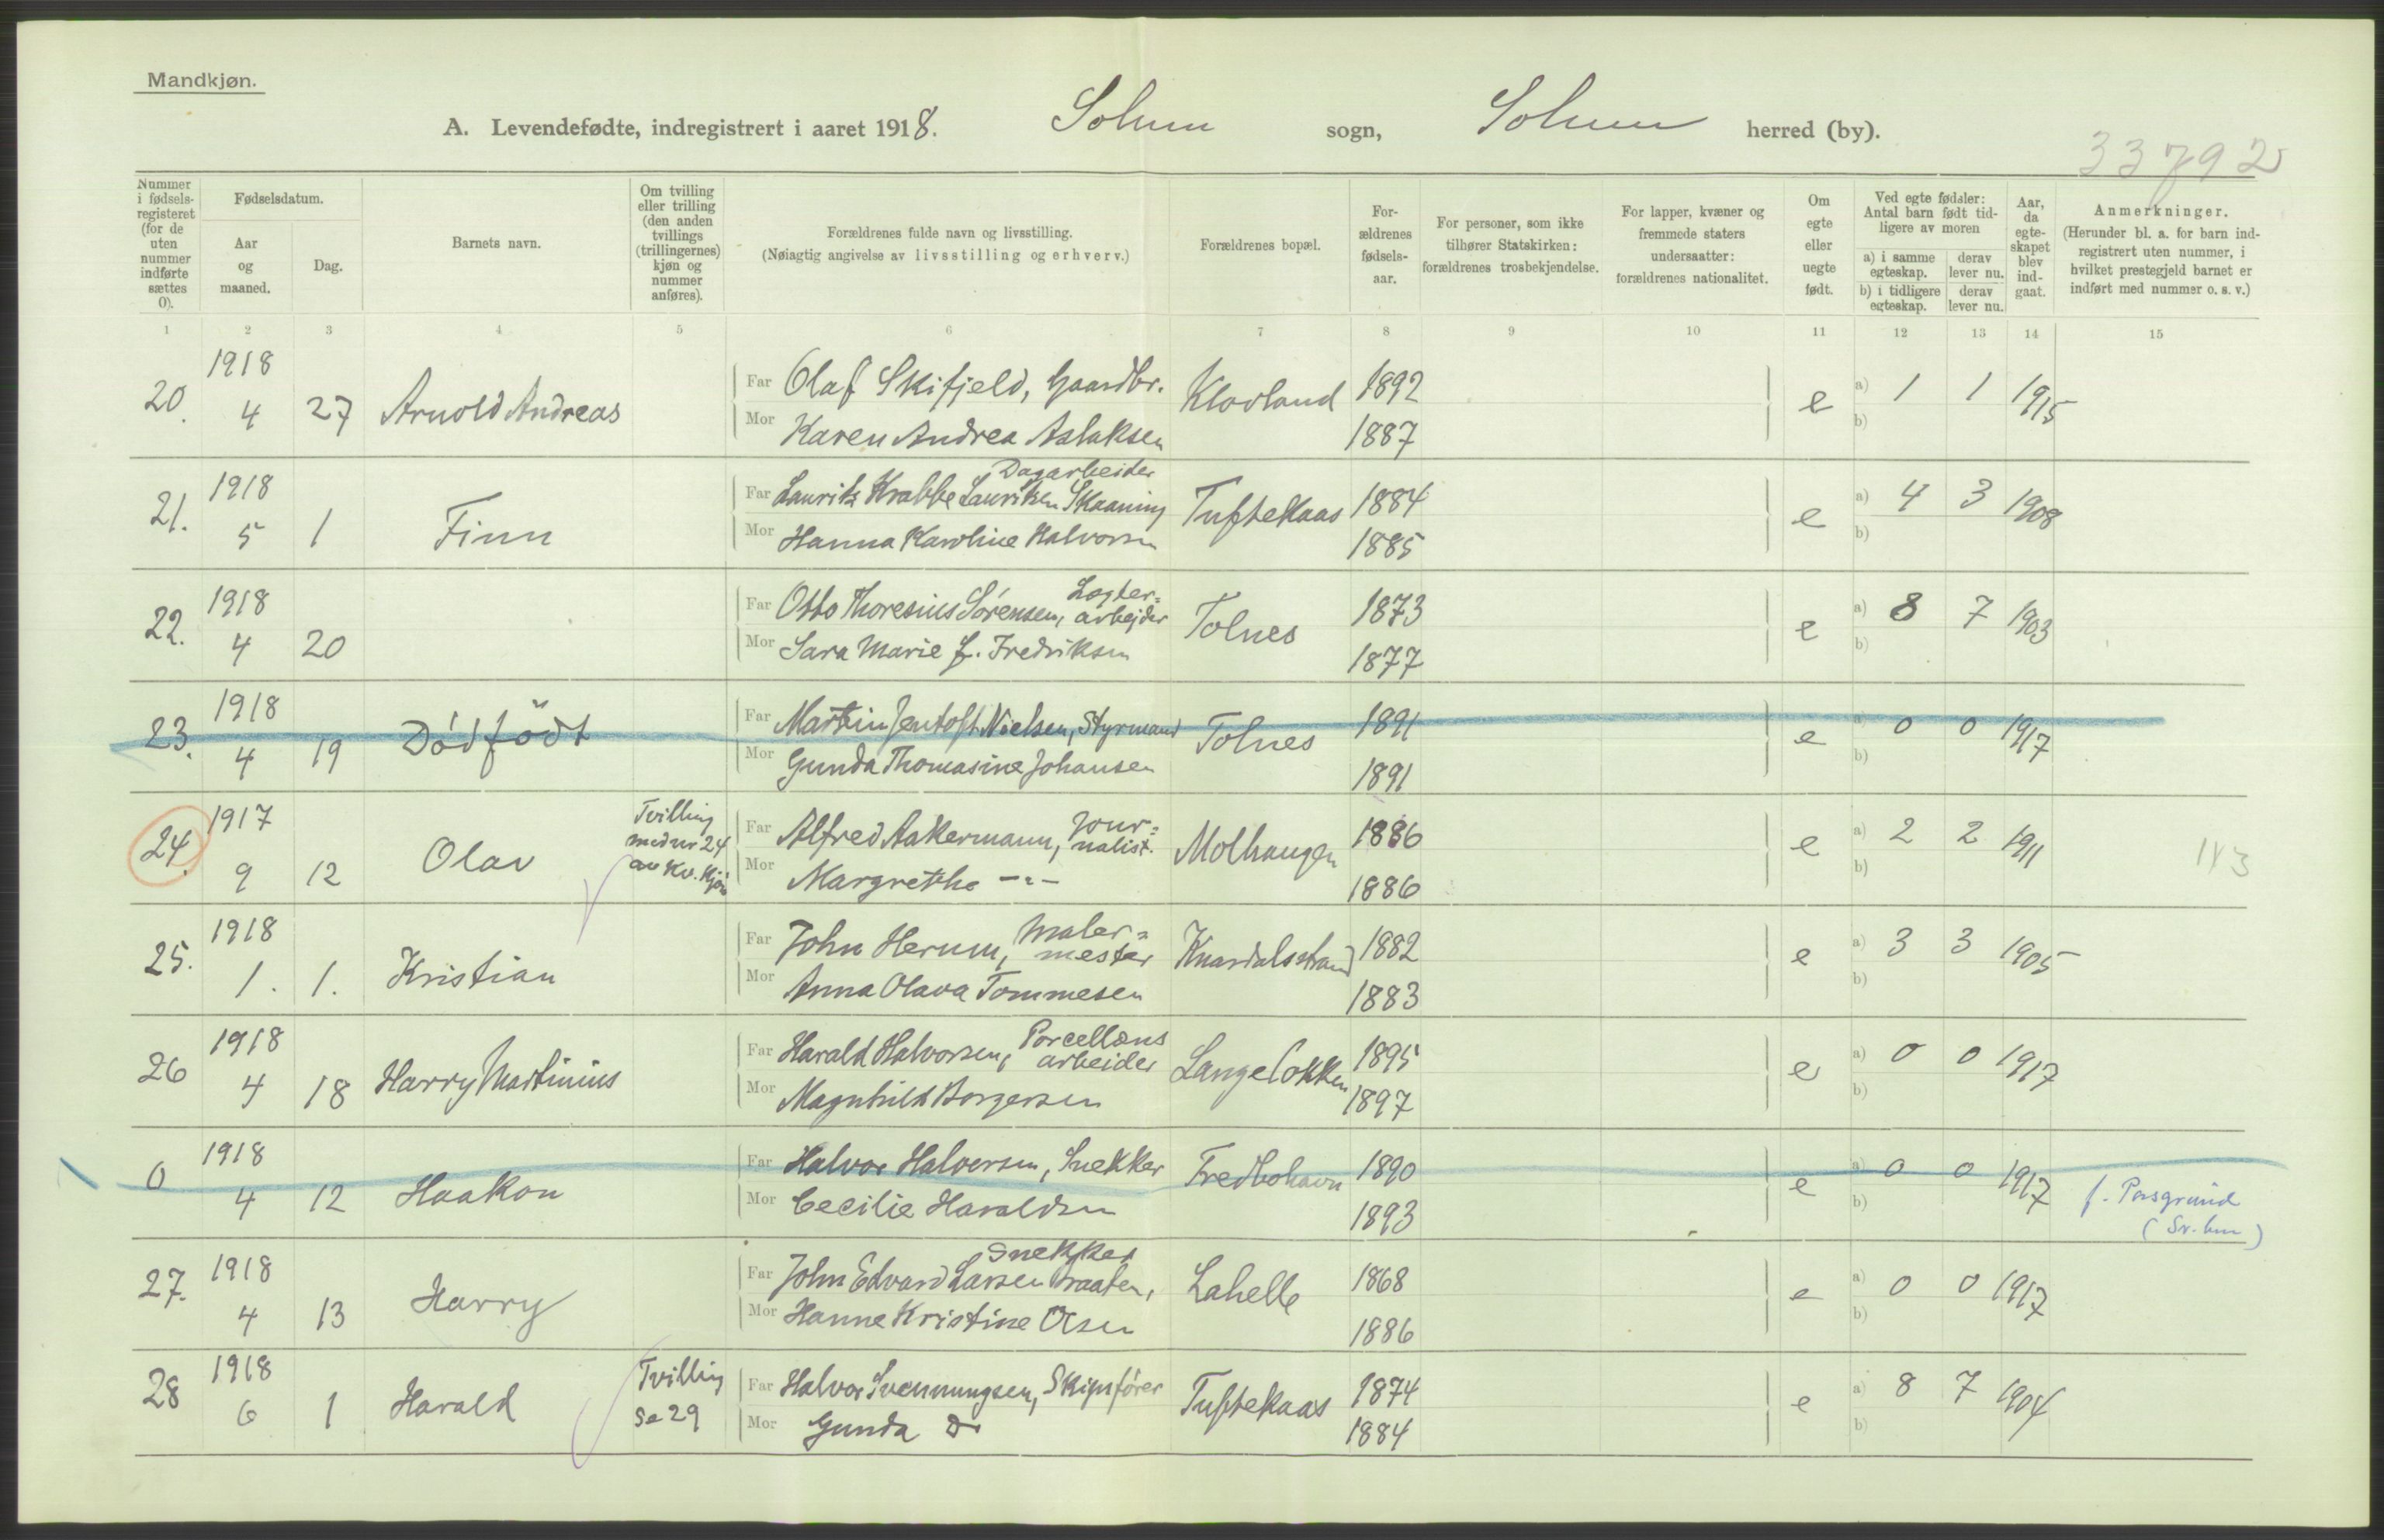 Mandkjøn.
A. Levendefødte, indregistrert i aaret 1918. Solum sogn, Solum herred (by).
33792
Nummer i fødselsregisteret (for de uten nummer indførte sættes 0).
Fødselsdatum.
Aar og maaned.
Dag.
Barnets navn.
Om tvilling eller trilling (den anden tvillings (trillingernes) kjøn og nummer anføres).
Forældrenes fulde navn og livsstilling.
(Nøiagtig angivelse av livsstilling og erhverv.)
Forældrenes bopæl.
Forældrenes fødselsaar.
For personer, som ikke tilhører Statskirken: forældrenes trosbekjendelse.
For lapper, kvæner og fremmede staters undersaatter: forældrenes nationalitet.
Om egte eller uegte født.
Ved egte fødsler: Antal barn født tidligere av moren
a) i samme egteskap. derav lever nu.
b) i tidligere egteskap. derav lever nu.
Aar, da egteskapet blev indgaat.
Anmerkninger.
(Herunder bl. a. for barn indregistrert uten nummer, i hvilket prestegjeld barnet er indført med nummer o. s. v.)
1 2 3 4 5 6 7 8 9 10 11 12 13 14 15
20. 1918 4 27 Arnold Andreas Far Olaf Skifjeld, Gaardbr. Klovland 1892 e a) 1 1 1915
Mor Karen Andrea Aslaksen 1887 b)
21. 1918 5 1 Finn Far Laurits Krabbe Lauritsen Skaaning Dagarbeider Tuftekaas 1884 e a) 4 3 1908
Mor Hanna Karoline Halvorsen 1885 b)
22. 1918 4 20 Far Otto Thoresius Sörensen, Logterarbejder Tolnes 1873 e a) 8 7 1903
Mor Sara Marie f. Fredriksen 1877 b)
23. 1918 4 19 Dödfödt Far Martin Jentoft Nielsen, Styrmand Tolnes 1891 e a) 0 0 1917
Mor Gunda Thomasine Johansen 1891 b)
24. 1917 9 12 Olav Tvilling med nr 24 av Kv. Kjön Far Alfred Aakermann, Journalist. Molhaugen 1886 e a) 2 2 1911 113
Mor Margrethe -"- 1886 b)
25. 1918 1. 1. Kristian Far John Herum, Malermester Knardalsstrand 1882 e a) 3 3 1905
Mor Anna Olava Tommesen 1883 b)
26 1918 4 18 Harry Martinius Far Harald Halvorsen, Porcellænsarbeider Langelökken 1895 e a) 0 0 1917
Mor Magnhild Borgersen 1897 b)
0 1918 4 12 Haakon Far Halvor Halvorsen, Snekker Fredbohavn 1890 e a) 0 0 1917 f. Porsgrund
Mor Cecilie Haraldsen 1893 b)
27. 1918 4 13 Harry Far John Edvard Larsen Braaten, Snekker Lahelle 1868 e a) 0 0 1917
Mor Hanne Kristine Olsen 1886 b)
28 1918 6 1 Harald Tvilling Se 29 Far Halvor Svennungsen, Skipsförer Tuftekaas 1874 e a) 8 7 1904
Mor Gunda do 1884 b)